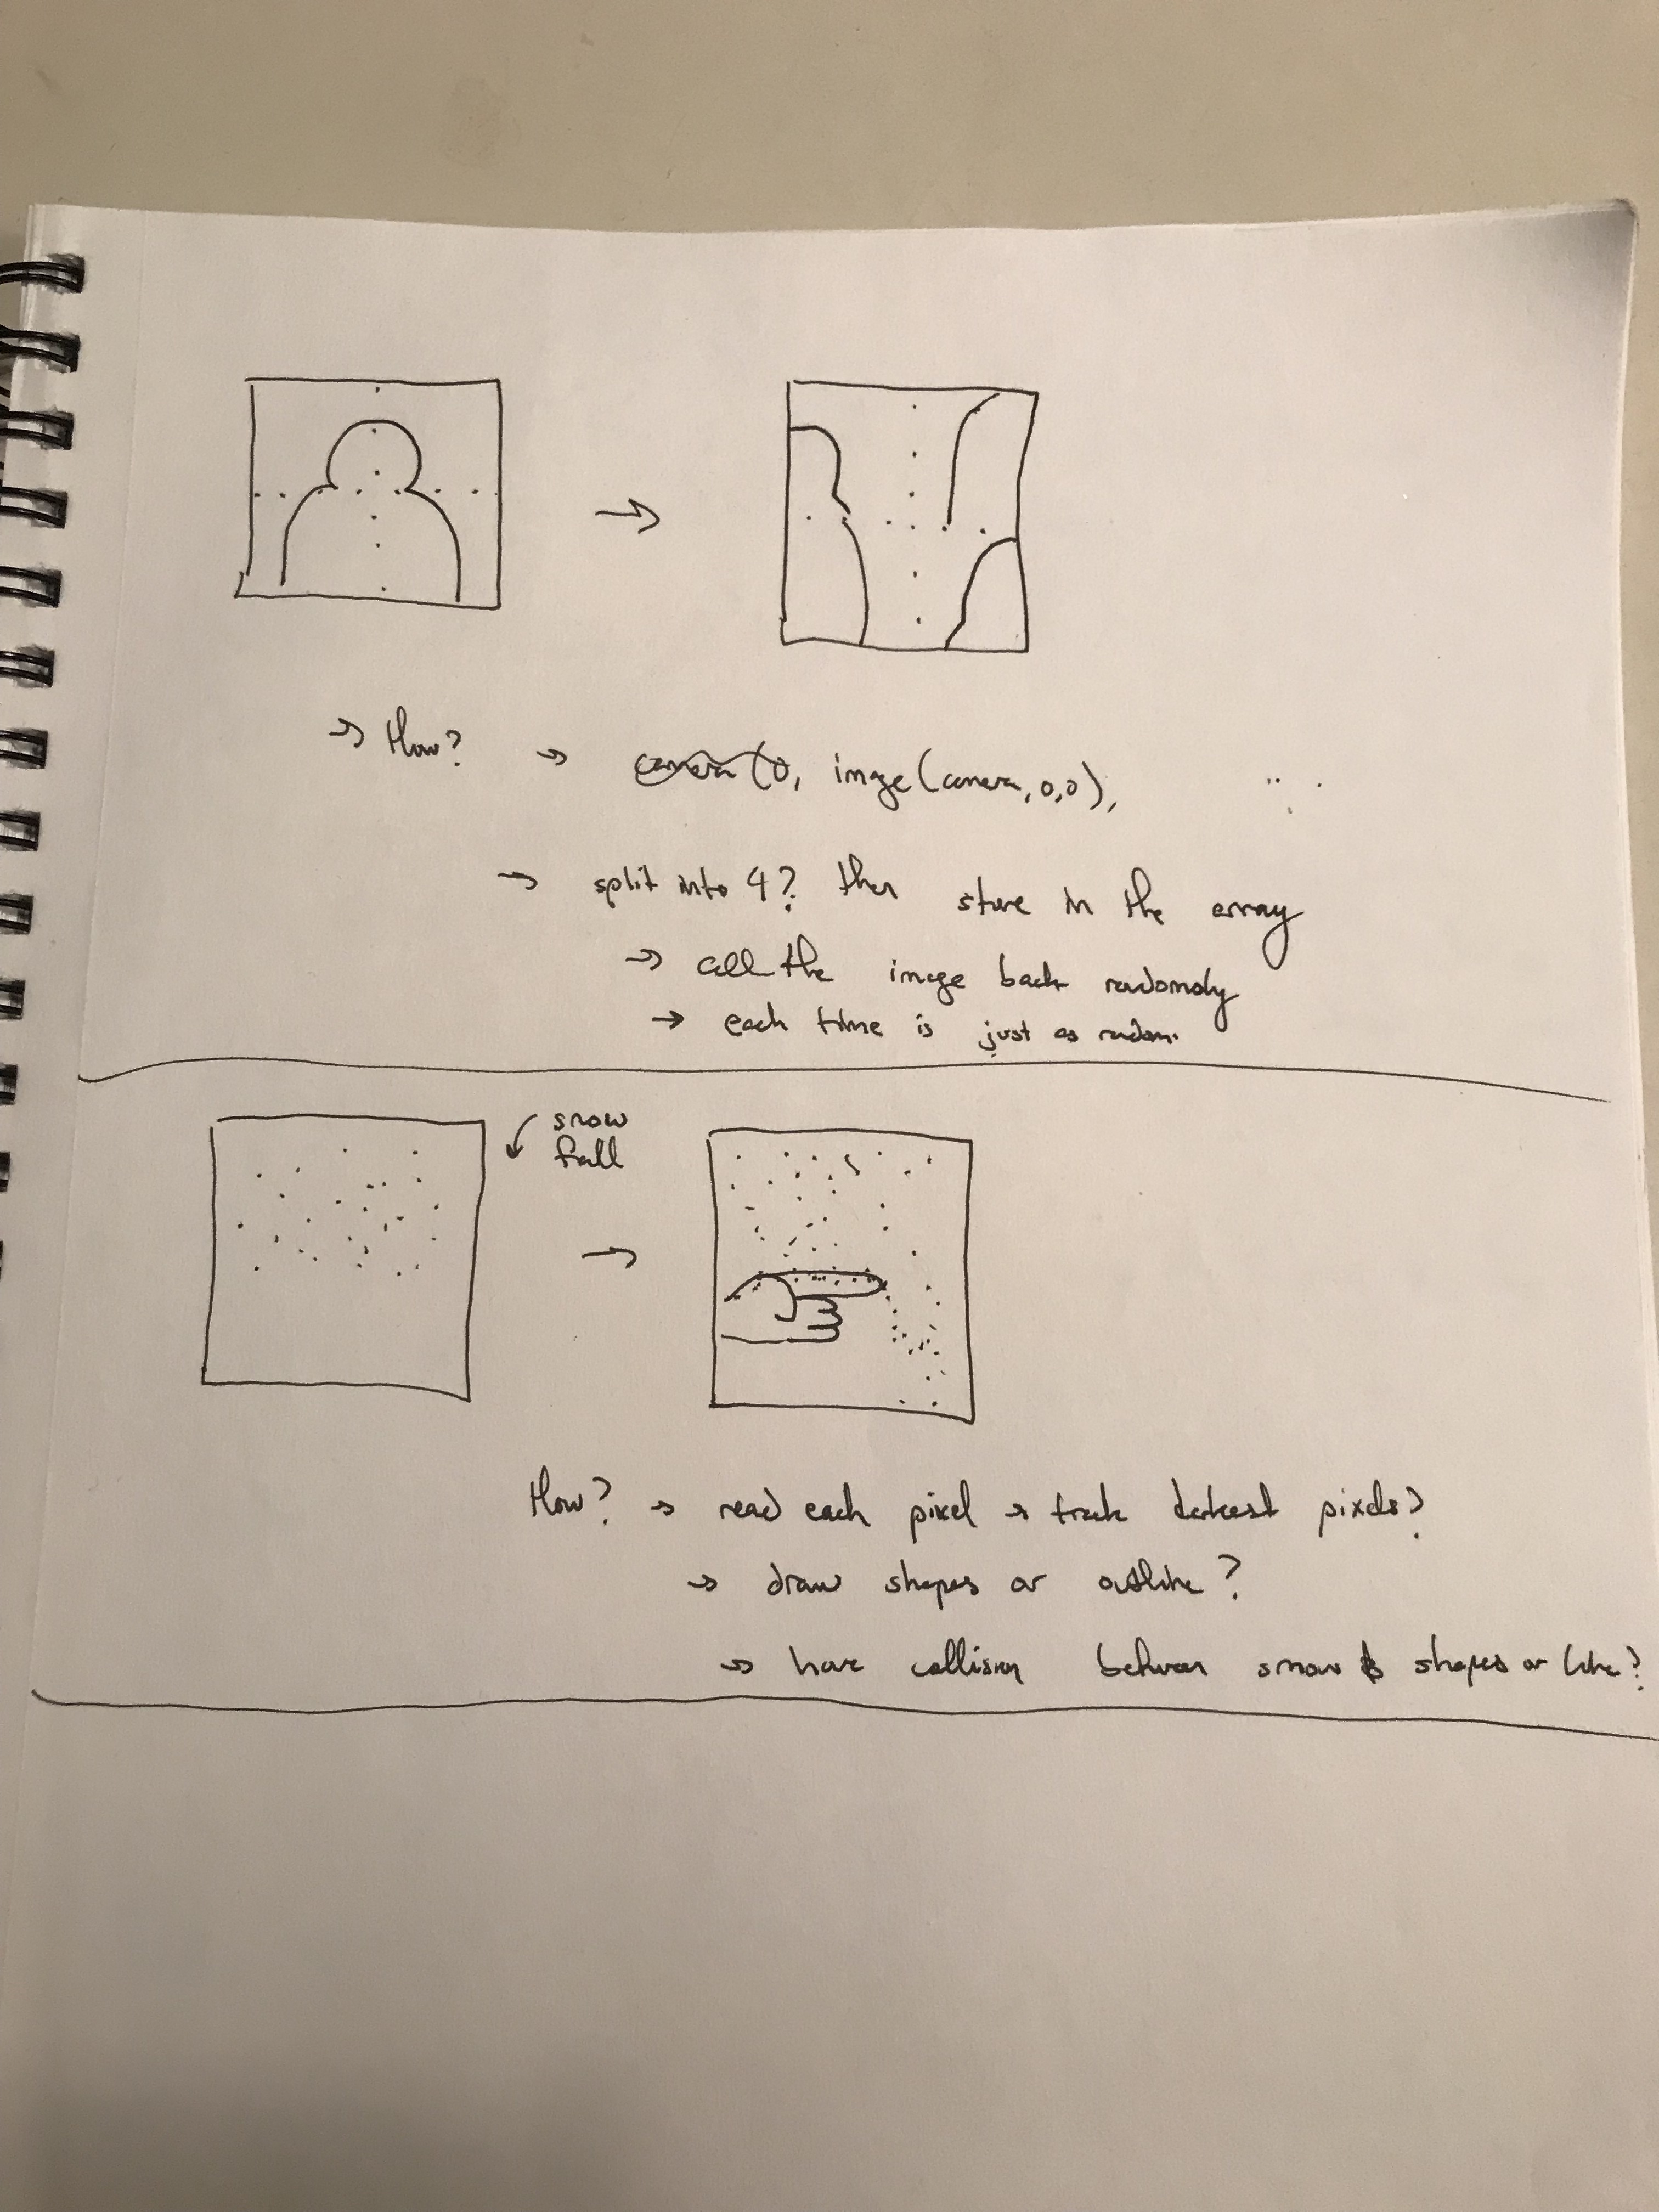 → How? → camera (0, image(camera,0,0),
→ split into 4? then store in the array
→ call the image back randomly
→ each time is just as random.
snow
fall
How? → read each pixel → track darkest pixels?
→ draw shapes or outline?
→ have collision between snow & shapes or line?